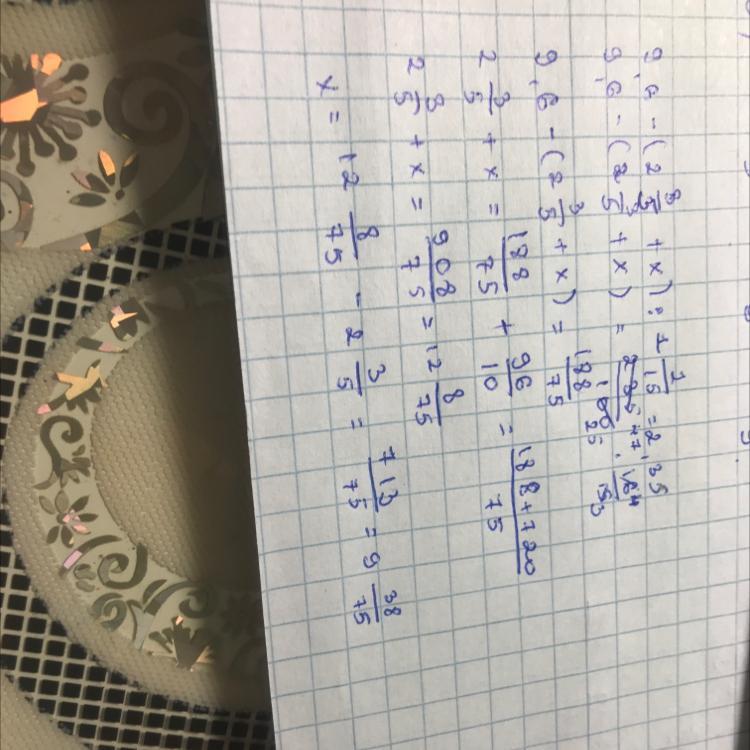 9,6 - (2 3/5 + x) : 1 1/15 = 2,35
9,6 - (2 3/5 + x) = 235/100 · 16/15
9,6 - (2 3/5 + x) = 188/75
2 3/5 + x = 188/75 + 96/10 = 188+720/75
2 3/5 + x = 908/75 = 12 8/75
x = 12 8/75 - 2 3/5 = 713/75 = 9 38/75